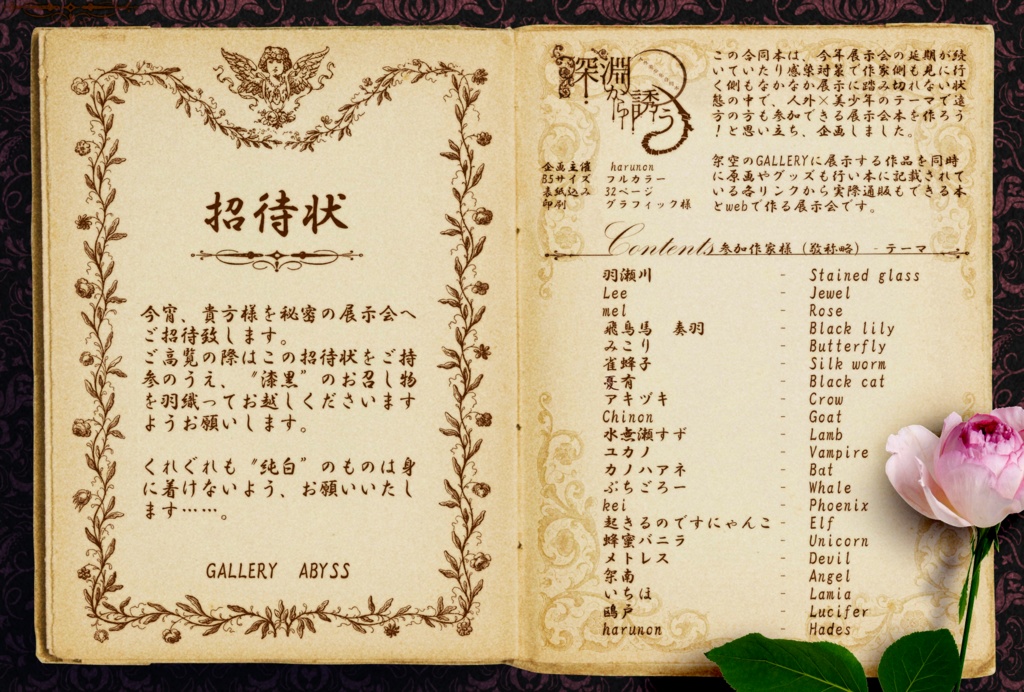 招待状
今宵、貴方様を秘密の展示会へ
ご招待致します。
ご高覧の際はこの招待状をご持
参のうえ、〝漆黒〟のお召し物
を羽織ってお越しくださいます
ようお願いします。
くれぐれも〝純白〟のものは身
に着けないよう、お願いいたし
ます……。
GALLERY ABYSS
深淵から誘う
この合同本は、今年展示会の延期が続
いていたり感染対策で作家側も見に行
く側もなかなか展示に踏み切れない状
態の中で、人外×美少年のテーマで遠
方の方も参加できる展示会本を作ろう
！と思い立ち、企画しました。
架空のGALLERYに展示する作品を同時
に原画やグッズも行い本に記載されて
いる各リンクから実際通販もできる本
とwebで作る展示会です。
企画主催 harunon
B5サイズ フルカラー
表紙込み 32ページ
印刷 グラフィック様
Contents 参加作家様（敬称略） - テーマ
羽瀬川 - Stained glass
Lee - Jewel
mel - Rose
飛鳥馬 奏羽 - Black lily
みこり - Butterfly
雀蜂子 - Silk worm
憂宥 - Black cat
アキヅキ - Crow
Chinon - Goat
水無瀬すず - Lamb
ユカノ - Vampire
カノハアネ - Bat
ぷちごろー - Whale
kei - Phoenix
起きるのですにゃんこ - Elf
蜂蜜バニラ - Unicorn
メトレス - Devil
架南 - Angel
いちほ - Lamia
鴎戸 - Lucifer
harunon - Hades